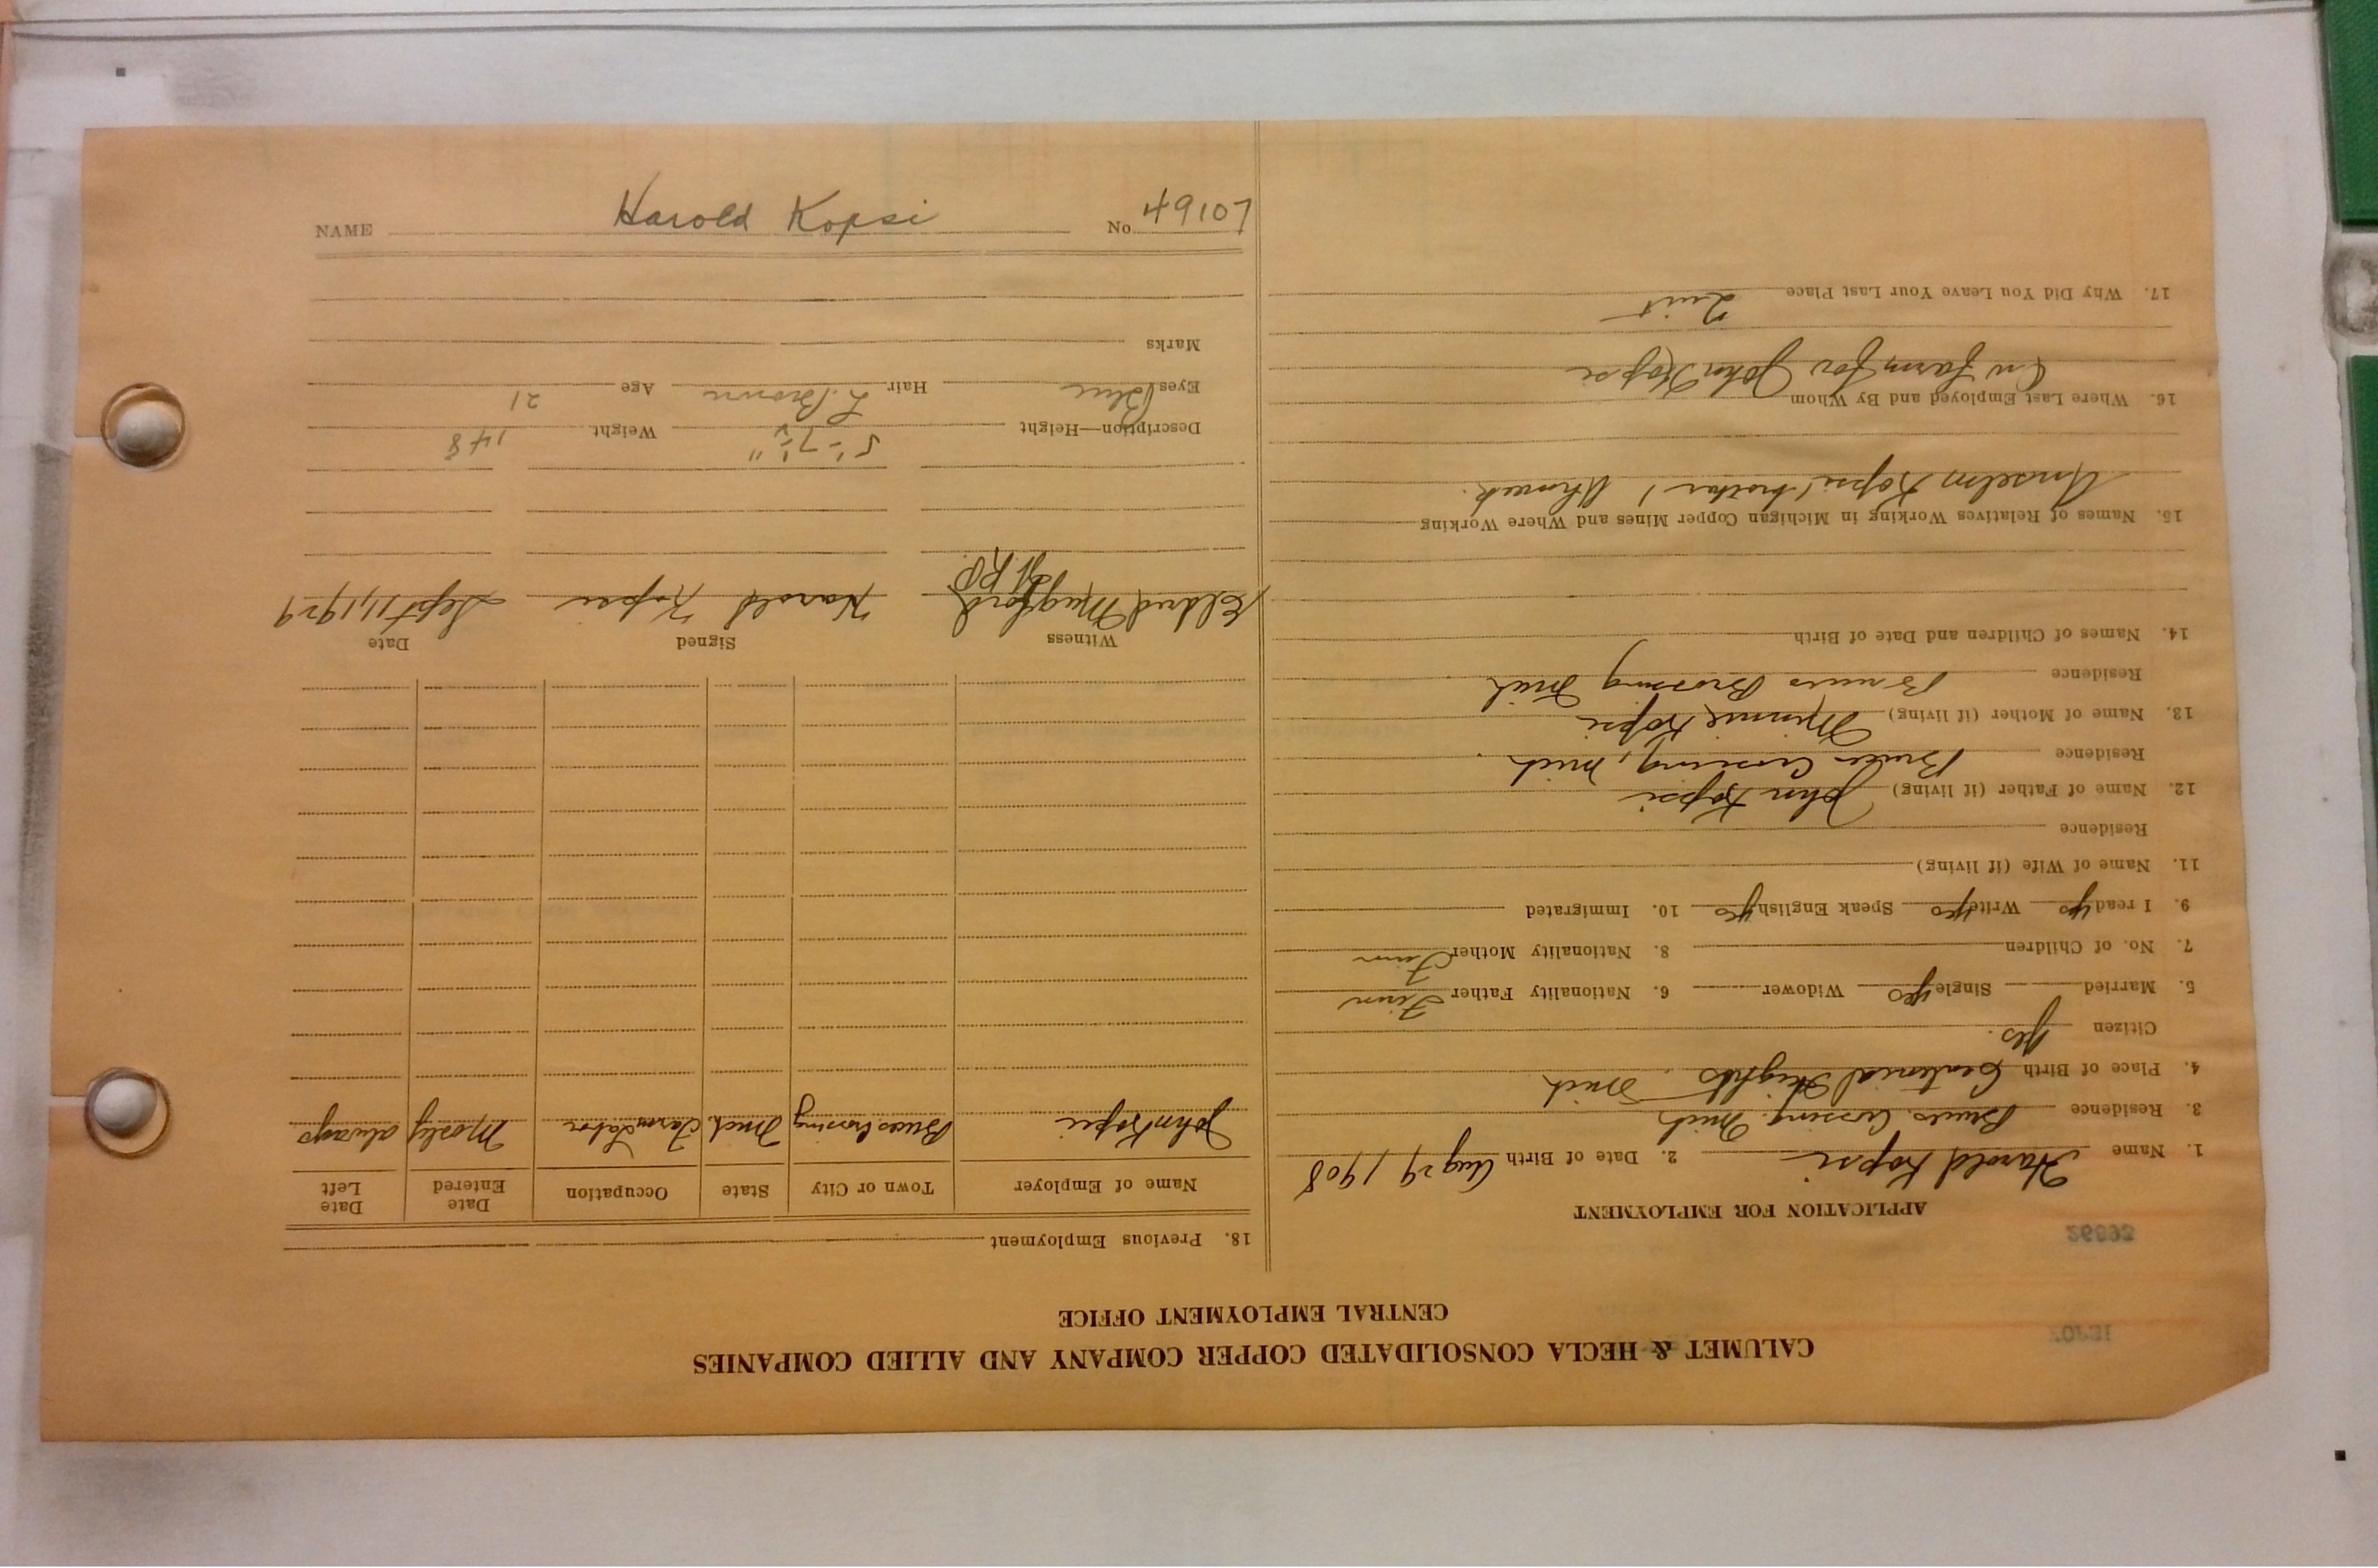 CALUMET & HECLA CONSOLIDATED COPPER COMPANY AND ALLIED COMPANIES
CENTRAL EMPLOYMENT OFFICE
26893
APPLICATION FOR EMPLOYMENT
1. Name Harold Kopsi 2. Date of Birth Aug 29, 1908
3. Residence Bruces Crossing, Mich
4. Place of Birth Centenial Heights, Mich
Citizen Yes.
5. Married Single yes Widower 6. Nationality Father Finn
7. No. of Children 8. Nationality Mother Finn
9. I read yes Write yes Speak English yes 10. Immigrated
11. Name of Wife (if living)
Residence
12. Name of Father (if living) John Kopsi
Residence Bruces Crossing, Mich
13. Name of Mother (if living) Minnie Kopsi
Residence Bruces Crossing Mich
14. Names of Children and Date of Birth
15. Names of Relatives Working in Michigan Copper Mines and Where Working
Anselm Kopsi (brother) Ahmeek.
16. Where Last Employed and By Whom
On farm for John Kopsi
17. Why Did You Leave Your Last Place Quit
18. Previous Employment
Name of Employer Town or City State Occupation Date Entered Date Left
John Kopsi Bruces Crossing Mich. Farm Labor Mostly always
Witness Signed Date
Eldred Mugford Harold Kopsi Sept 11, 1929
Description—Height 5'-7½" Weight 148
Eyes Blue Hair L. Brown Age 21
Marks
NAME Harold Kopsi No. 49107